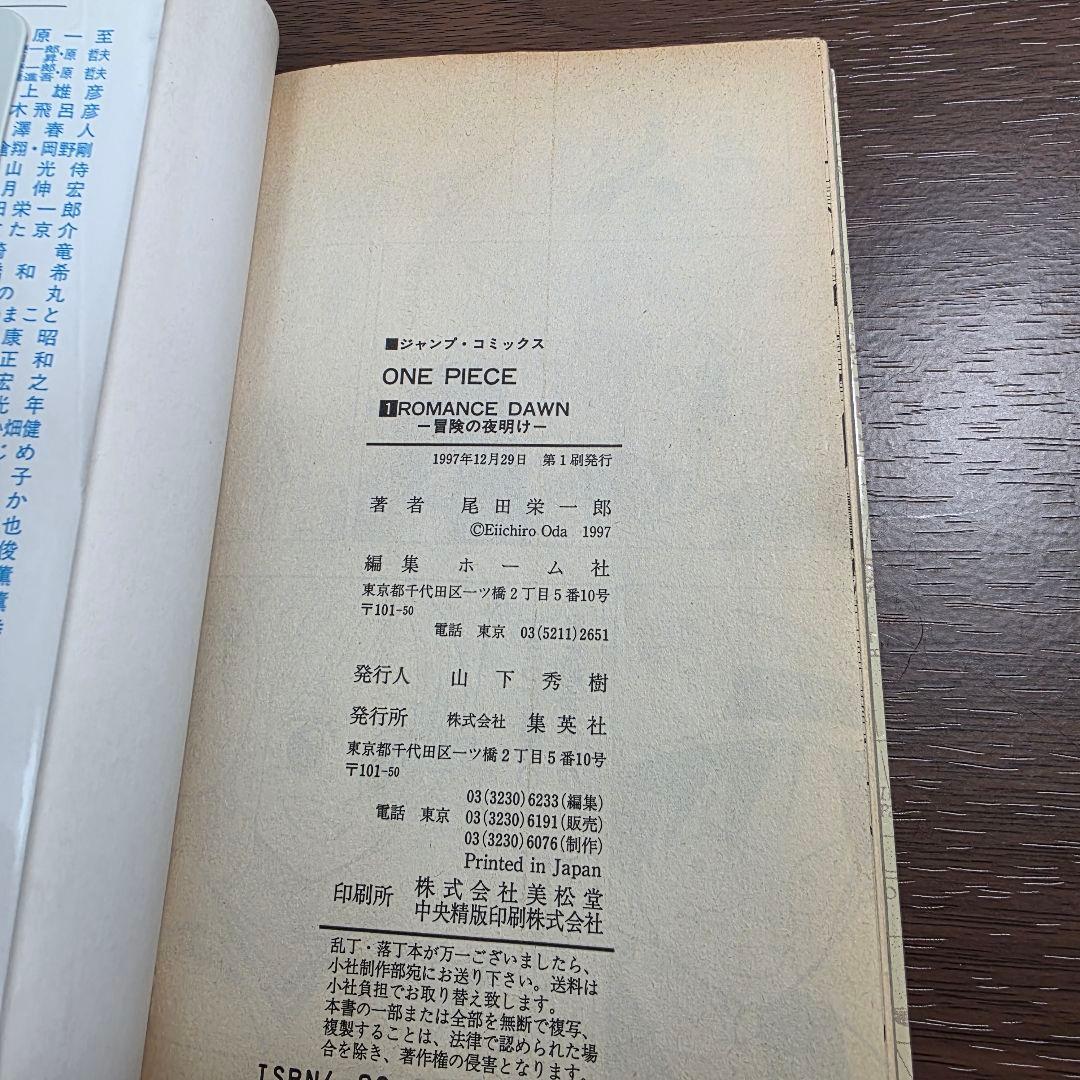 原一至
原 哲夫
原 哲夫
上雄彦
木飛呂彦
澤春人
翔・岡野剛
山光侍
月伸宏
田栄一郎
た京介
竜
和希
の丸
まこと
康昭
正和
宏之
光年
畑健
じめ
子
か
也
俊
薫
■ジャンプ・コミックス
ONE PIECE
1 ROMANCE DAWN
―冒険の夜明け―
1997年12月29日 第1刷発行
著者 尾田栄一郎
©Eiichiro Oda 1997
編集 ホーム社
東京都千代田区一ツ橋2丁目5番10号
〒101-50
電話 東京 03(5211)2651
発行人 山下秀樹
発行所 株式会社 集英社
東京都千代田区一ツ橋2丁目5番10号
〒101-50
03(3230)6233(編集)
電話 東京 03(3230)6191(販売)
03(3230)6076(制作)
Printed in Japan
印刷所 株式会社美松堂
中央精版印刷株式会社
乱丁・落丁本が万一ございましたら、
小社制作部宛にお送り下さい。送料は
小社負担でお取り替え致します。
本書の一部または全部を無断で複写、
複製することは、法律で認められた場
合を除き、著作権の侵害となります。
ISBN4